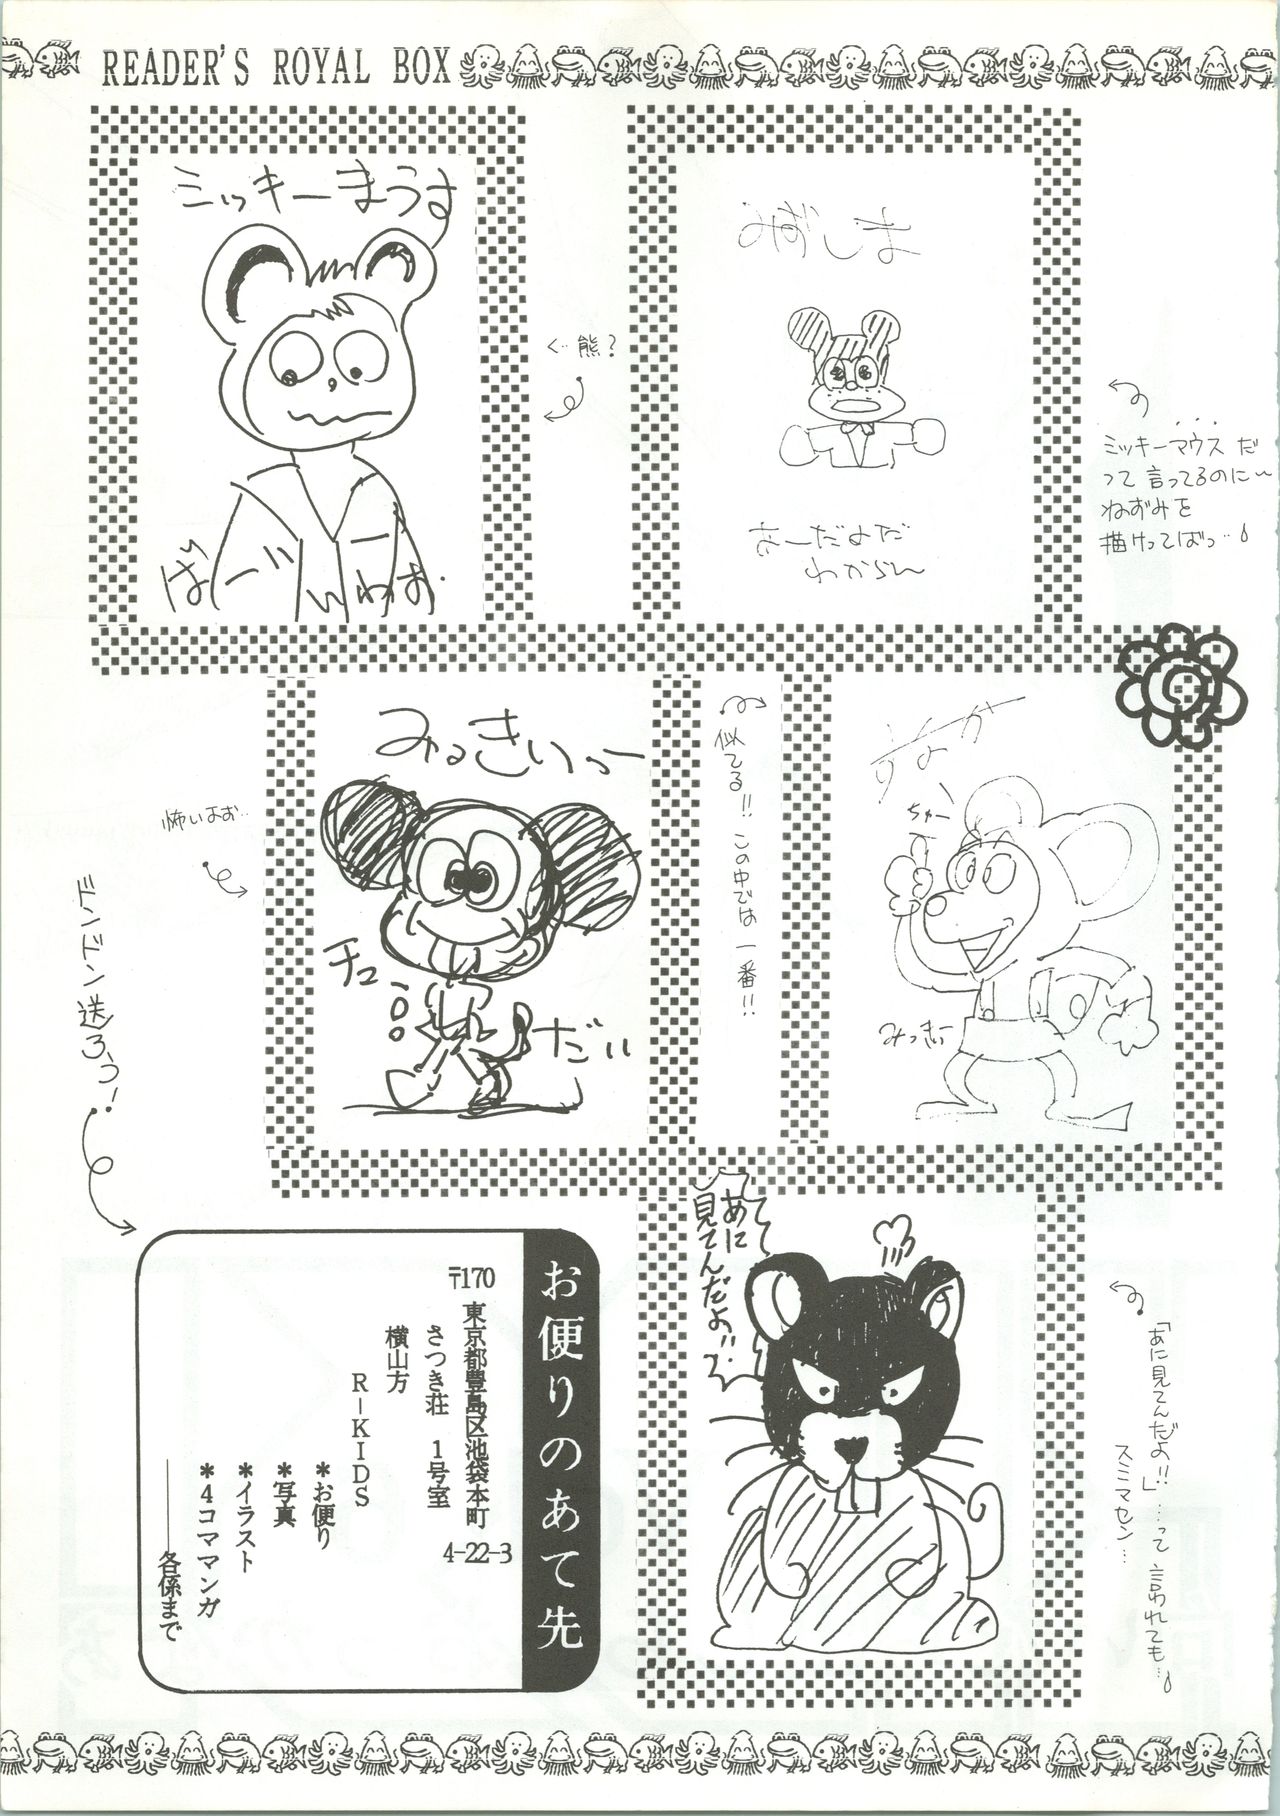 READER'S ROYAL BOX
ミッキーまうす
ばーい
<…熊?
みずしま
なーだよだ
わからん
ミッキーマウスだ
って言ってるのに〜
ねずみを
描けってばっ…
みっきいっー
チュー
だい
怖いよお…
似てる!!この中では一番!!
ちゅー
みっきぃー
ドンドン送ろう!
お便りのあて先
〒170 東京都豊島区池袋本町
4-22-3
さつき荘 1号室
横山方
R-KIDS
*お便り
*写真
*イラスト
*4コママンガ
――各係まで
あに
見てんだよ!!
「あに見てんだよ!!」…って言われても…
スミマセン…